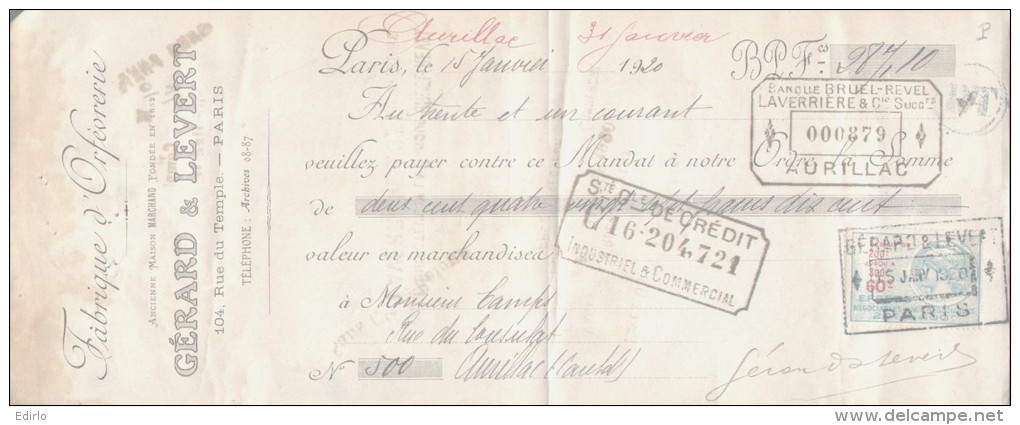 Fabrique d'Orfèvrerie
ANCIENNE MAISON MARCHAND FONDÉE EN
GÉRARD & LEVERT
104, Rue du Temple — PARIS
TÉLÉPHONE : Archives 08-87
Aurillac 31 Janvier
Paris, le 15 Janvier 1920 B.P.F.cs 287,10
Au trente et un courant
veuillez payer contre ce Mandat à notre Ordre la Somme
de deux cent quatre vingt sept francs dix cent
valeur en marchandises
à Monsieur Camps
Rue du Consulat
No 500 Aurillac (Cantal)
BANQUE BRUEL-REVEL
LAVERRIÈRE & Cie Succrs
000879
AURILLAC
Sté Gle DE CRÉDIT
G/16-204,721
INDUSTRIEL & COMMERCIAL
GÉRARD & LEVERT
15 JANV 1920
60c
PARIS
Gérard & Levert
P
Edirlo
www.delcampe.net